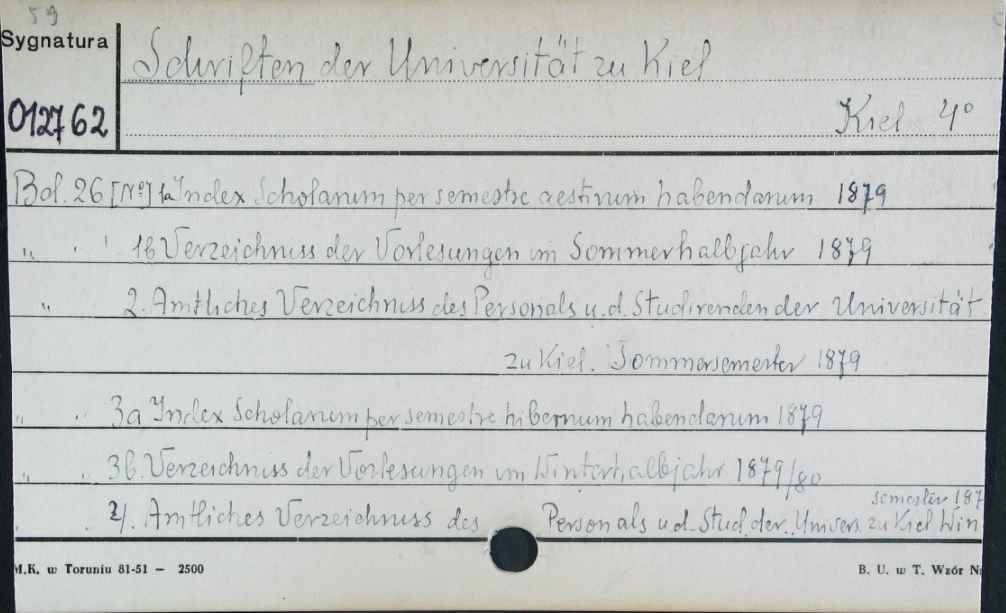 59
Sygnatura
Schriften der Universität zu Kiel
012762
Kiel 4°
Bd. 26 [Nº] 1a Index Scholarum per semestre aestivum habendarum 1879
" " 1b Verzeichniss der Vorlesungen im Sommerhalbjahr 1879
" 2. Amtliches Verzeichniss des Personals u. d. Studirenden der Universität
zu Kiel. Sommersemester 1879
" " 3a Index Scholarum per semestre hibernum habendarum 1879
" " 3b. Verzeichniss der Vorlesungen im Winterhalbjahr 1879/80
semester 187
" " 4. Amtliches Verzeichniss des Personals u d. Stud. der. Univers. zu Kiel Win
M.K. w Toruniu 81-51 — 2500
B. U. w T. Wzór Nr